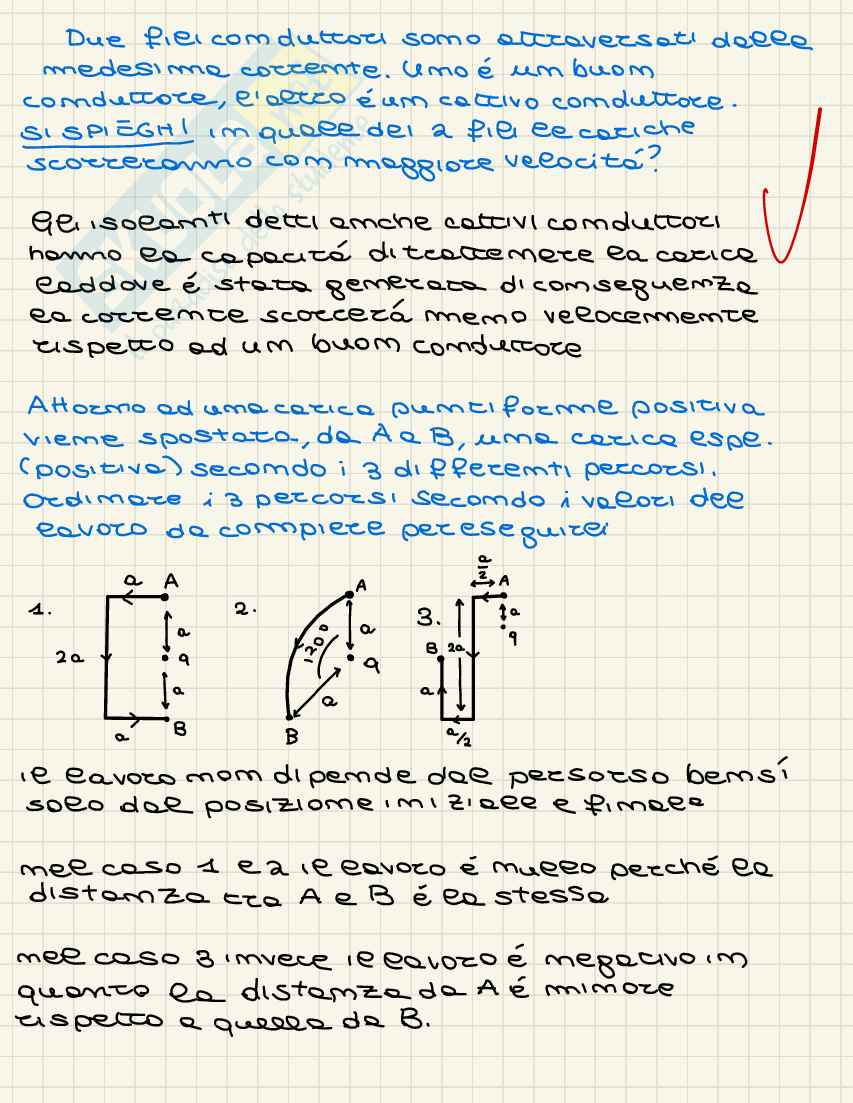 Due fili conduttori sono attraversati dalla
medesima corrente. Uno é un buon
conduttore, l'altro é un cattivo conduttore.
SI SPIEGHI in quale dei 2 fili le cariche
scorreranno con maggiore velocitá?
Gli isolanti detti anche cattivi conduttori
hanno la capacitá di trattenere la carica
laddove é stata generata di conseguenza
la corrente scorrerá meno velocemente
rispetto ad un buon conduttore
Attorno ad una carica puntiforme positiva
viene spostata, da A a B, una carica espl.
(positiva) secondo i 3 differenti percorsi.
Ordinare i 3 percorsi secondo i valori del
lavoro da compiere per eseguirli
1. a A a q a B a 2a
2. A a q 120° a B
3. a/2 A a q 2a B a a/2
il lavoro non dipende dal persorso bensí
solo dal posizione iniziale e finale
nel caso 1 e 2 il lavoro é nullo perché la
distanza tra A e B é la stessa
nel caso 3 invece il lavoro é negativo in
quanto la distanza da A é minore
rispetto a quella da B.